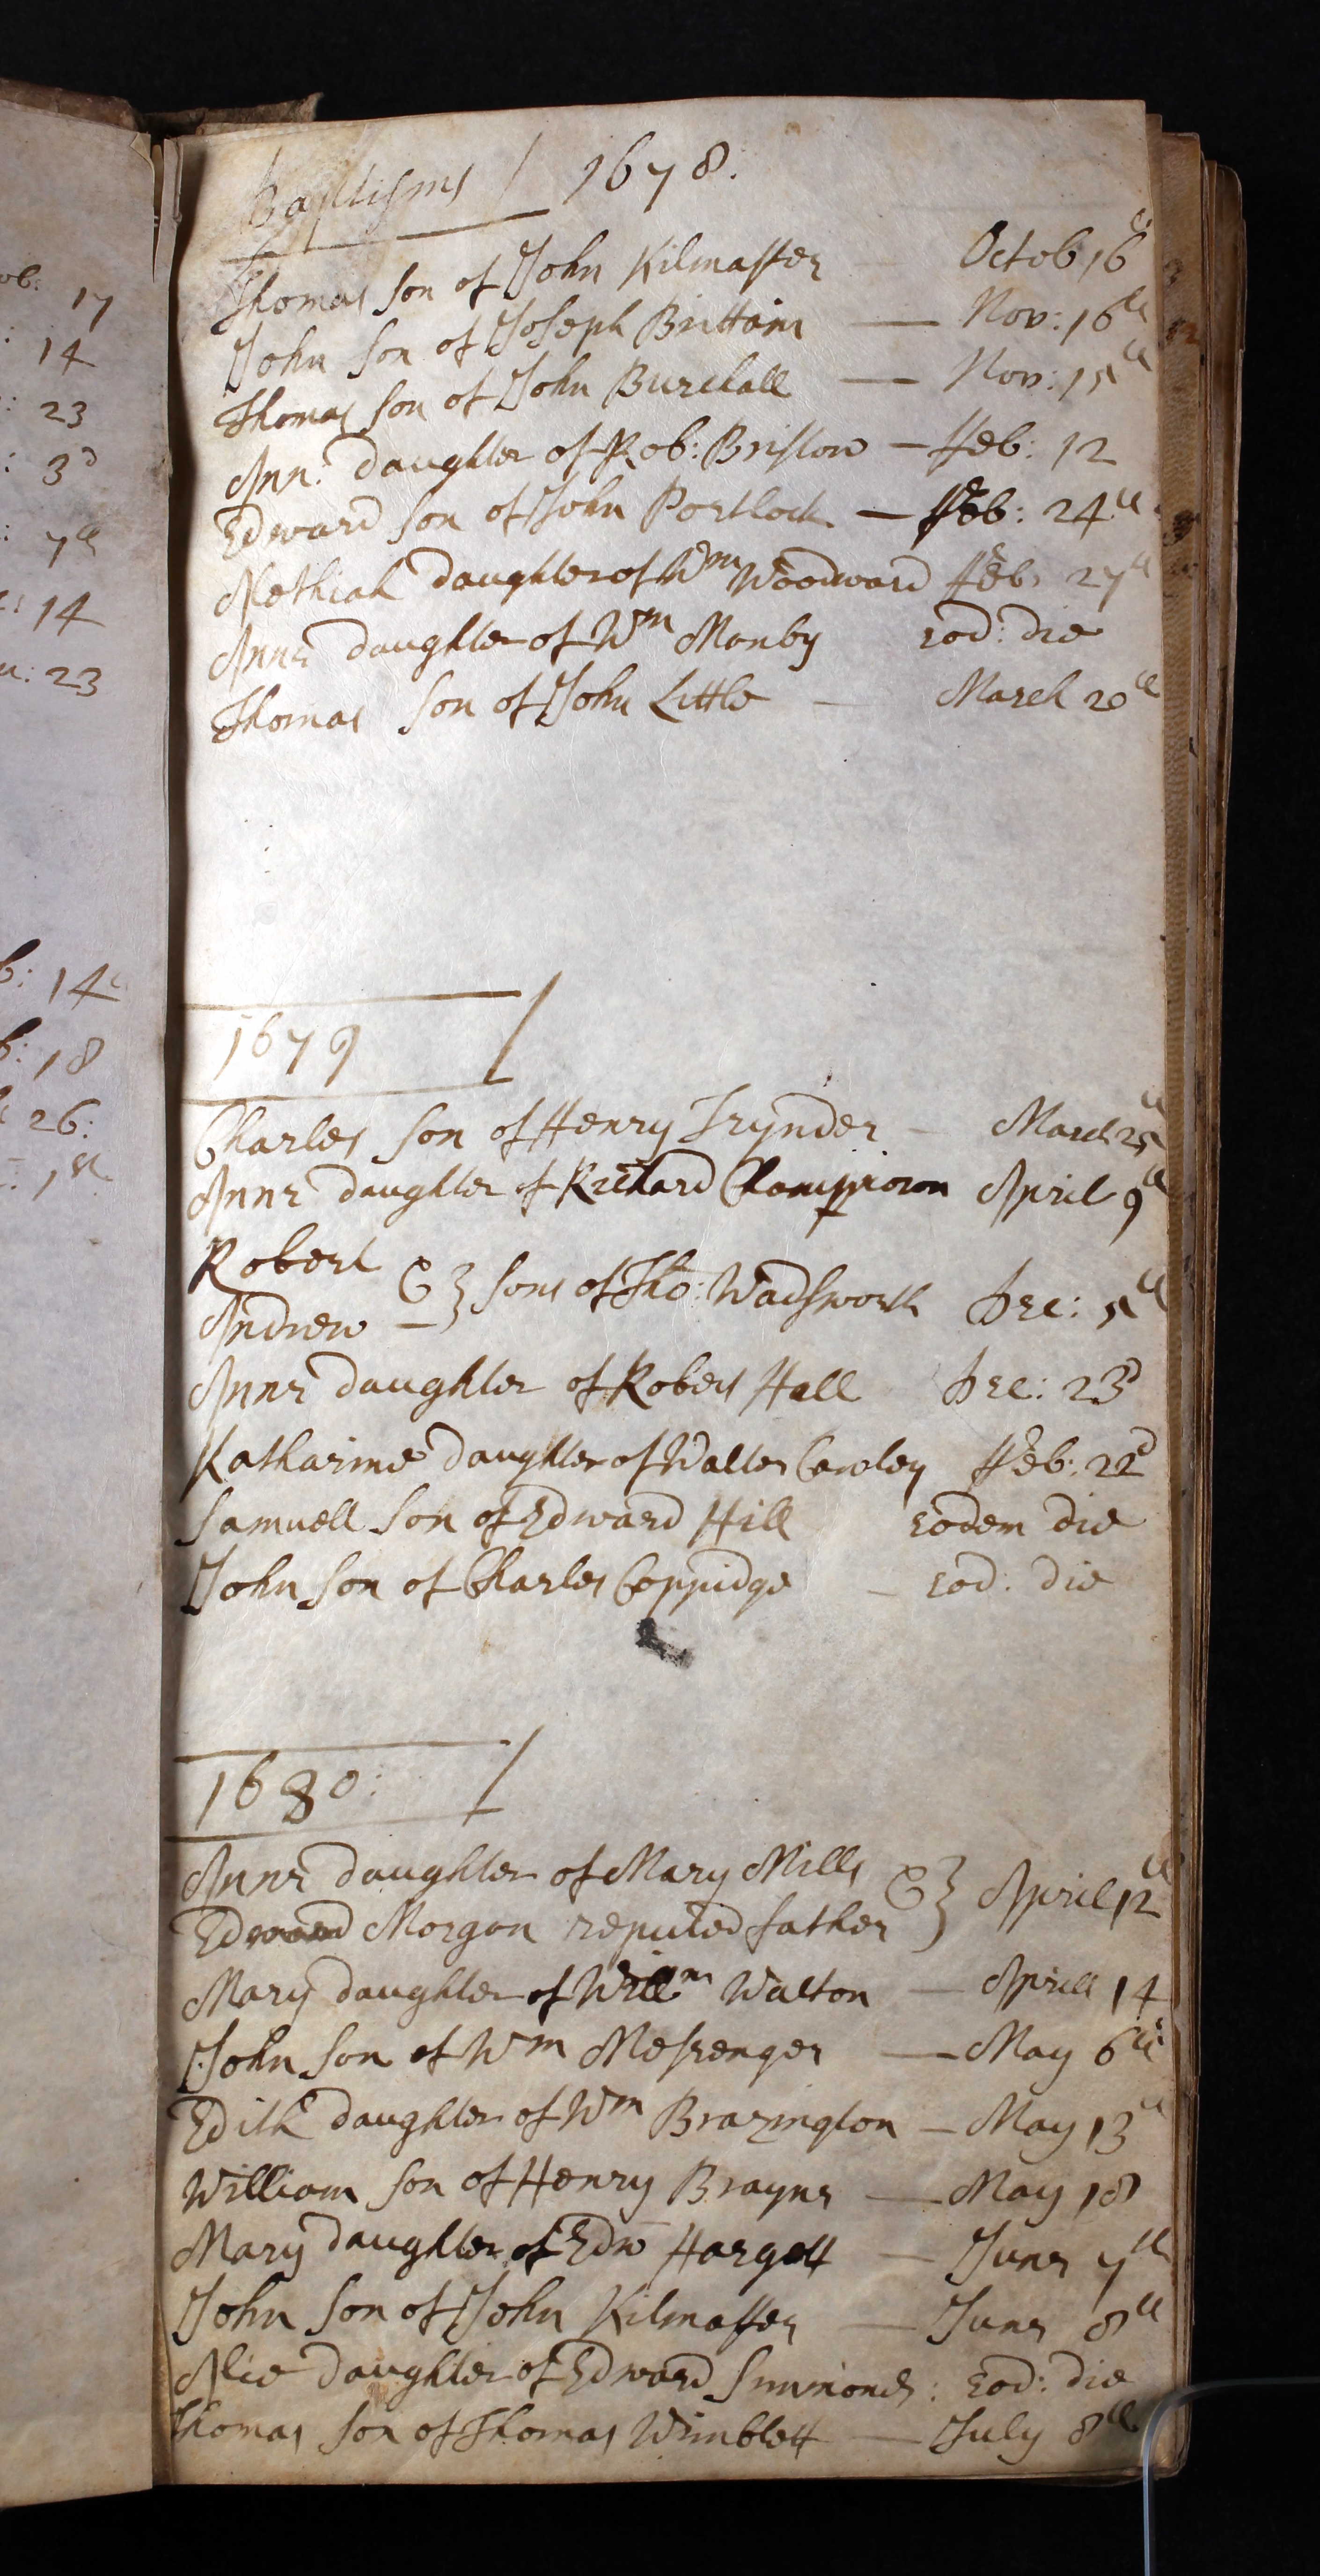 ob: 17
: 14
: 23
: 3d
: 7th
: 14
u: 23
b: 14
b: 18
26:
: 1st
Baptisms / 1678.
Thomas son of John Kilmaster Octob 16th
John son of Joseph Brittain — Nov: 16th
Thomas son of John Burchall — Nov: 15th
Ann: daughter of Rob: Bristow — ffeb: 12
Edward son of John Portlock — ffeb: 24th
daughter of Wm Woodward ffeb: 27th
Anne daughter of Wm Manby eod: die
Thomas son of John Little — March 20th
1679 /
Charles son of Henry Trynder — March 25th
Anne daughter of Richard Champion April 9th
Robert
& } sons of Tho: Wadsworth Dec: 5th
Andrew —
Anne daughter of Robert Hall Dec: 23d
Katharine daughter of Walter Cawley ffeb: 22d
Samuell son of Edward Hill eodem die
John son of Charles Coppidge — eod: die
1680: /
Anne daughter of Mary Mills
& } April 12th
Edward Morgan reputed father
Mary daughter of Willm Walton — Aprill 14
John son of Wm Messenger — May 6th
Edith daughter of Wm Brazington — May 13th
William son of Henry Brayne — May 18
Mary daughter of Edw Hargett — June 7th
John son of John Kilmaster — June 8th
Alice daughter of Edward Simmonds: eod: die
Thomas son of Thomas Wimblett — July 8th